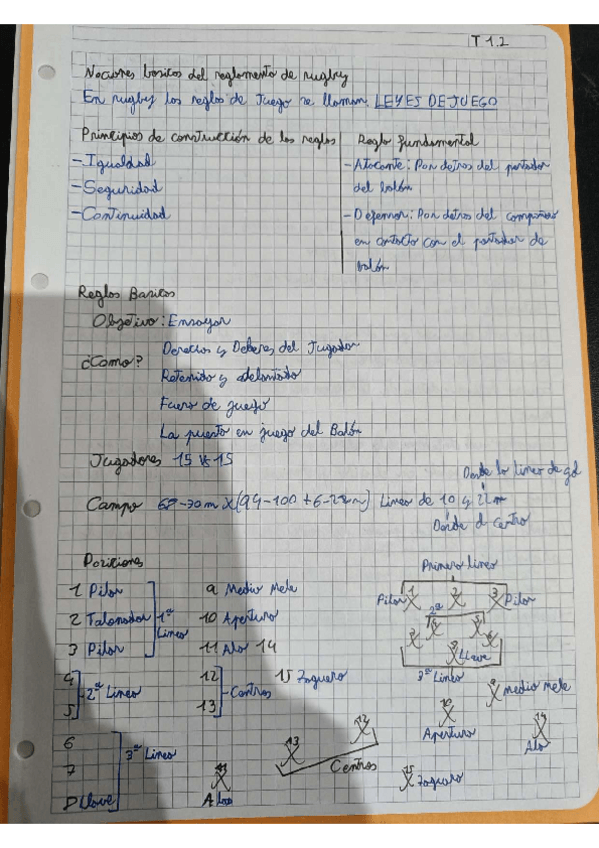 T 1.2
Nociones basicas del reglamento de rugby
En rugby las reglas de Juego se llaman LEYES DE JUEGO
Principios de construcción de las reglas
- Igualdad
- Seguridad
- Continuidad
Regla fundamental
- Atacante: Por detras del portador
del balón
- Defensor: Por detras del compañero
en contacto con el portador de
balón
Reglas Basicas
Objetivo: Ensayar
¿Como?
Derechos y Deberes del Jugador
Retenido y adelantado
Fuera de juego
La puesta en juego del Balón
Jugadores 15 vs 15
Desde la linea de gol
Campo 68-70m X (94-100 + 6-22m) Linea de 10 y 22m
Desde el centro
Posiciones
1 Pilar
2 Talonador
3 Pilar
1ª Linea
4
5
2ª Linea
6
7
8 Llave
3ª Linea
9 Medio Mele
10 Apertura
11 Ala 14
12
13
Centros
15 Zaguero
Primera linea
Pilar 1 2 3 Pilar
2ª
8
Llave
3ª Linea
9 Medio Mele
10
Apertura
14
Ala
12
13
Centros
11
Ala
15
Zaguero